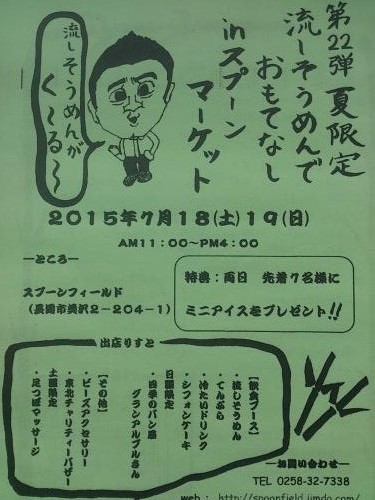 第22弾 夏限定
流しそうめんで
おもてなし
inスプーン
マーケット
流しそうめんが
く〜る〜
2015年7月18(土)19(日)
AM11:00〜PM4:00
―ところ―
スプーンフィールド
(長岡市美沢2-204-1)
特典:両日 先着7名様に
ミニアイスをプレゼント!!
出店りすと
【飲食ブース】
・流しそうめん
・てんぷら
・冷たいドリンク
・シフォンケーキ
日曜限定
・四季のパン屋
グランアルブルさん
【その他】
・ビーズアクセサリー
・東北チャリティーバザー
土曜限定
・足つぼマッサージ
―お問い合わせ―
TEL 0258-32-7338
web: http://spoonfield.jimdo.com/